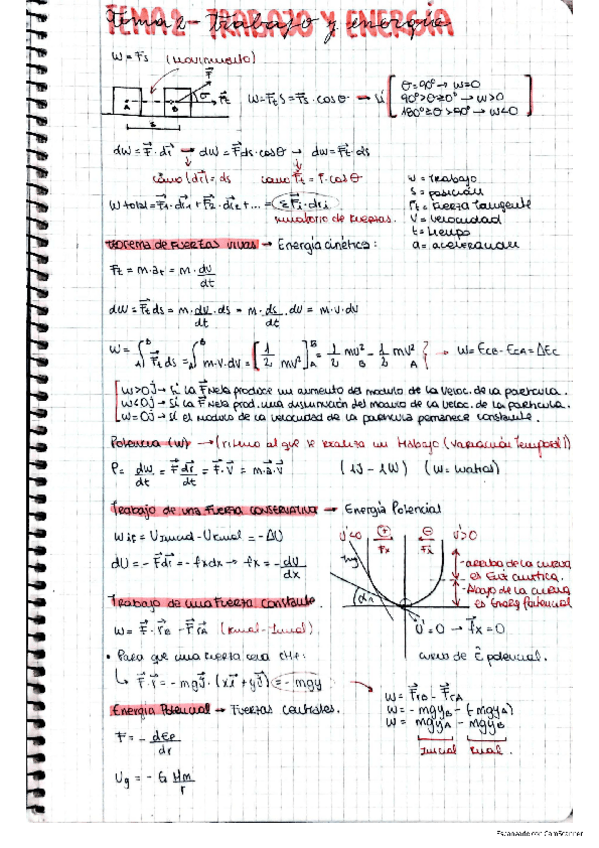 TEMA 2 - TRABAJO Y ENERGÍA
Tema 2 - Trabajo y energía
W = F·s (movimiento)
F
θ
Ft
A
B
s
W = Ft·s = F·s·cosθ → Si
θ=90º → W=0
90º>θ≥0º → W>0
180º≥θ>90º → W<0
dW = F·dr → dW = F·ds·cosθ → dW = Ft·ds
como |dr| = ds como Ft = F·cosθ
W total = F1·dr1 + F2·dr2 + ... = ΣFi·dri
sumatorio de fuerzas.
W = Trabajo
S = posición
Ft = Fuerza tangente
V = velocidad
t = tiempo
a = aceleración
Teorema de Fuerzas vivas → Energía cinética:
Ft = m·at = m·dv/dt
dW = Ft ds = m·dv/dt·ds = m·ds/dt·dv = m·v·dv
W = ∫AB Ft ds = ∫AB m·v·dv = [1/2 mv²]AB = 1/2 mv²B - 1/2 mv²A → W = EcB - EcA = ΔEc
W>0J → Si la F neta produce un aumento del modulo de la veloc. de la partícula.
W<0J → Si la F neta prod. una disminución del modulo de la veloc. de la partícula.
W=0J → Si el modulo de la velocidad de la partícula permanece constante.
Potencia (W) → (ritmo al que se realiza un trabajo (variación temporal))
P = dW/dt = F dr/dt = F·v = m·a·v (1J - 1W) (W = watios)
Trabajo de una Fuerza CONSERVATIVA → Energía Potencial
Wif = Uinicial - Ufinal = -ΔU
dU = -F dr = -fx dx → fx = -dU/dx
U'<0
+
Fx
-
Fx
U'>0
-arriba de la curva
es Ener cinética.
-Abajo de la curva
es Energ Potencial
U'=0 → fx=0
curva de E potencial.
Trabajo de una Fuerza constante.
W = F·rB - F·rA (final-inicial).
• Para que una fuerza sea cte:
↳ F·r = -mgj·(xi+yj) = -mgy
W = FrB - FrA
W = -mgyB - (-mgyA)
W = mgyA - mgyB
Inicial final.
Energía Potencial → Fuerzas centrales.
F = -dEp/dr
Ug = -G Mm/r
Escaneado con CamScanner